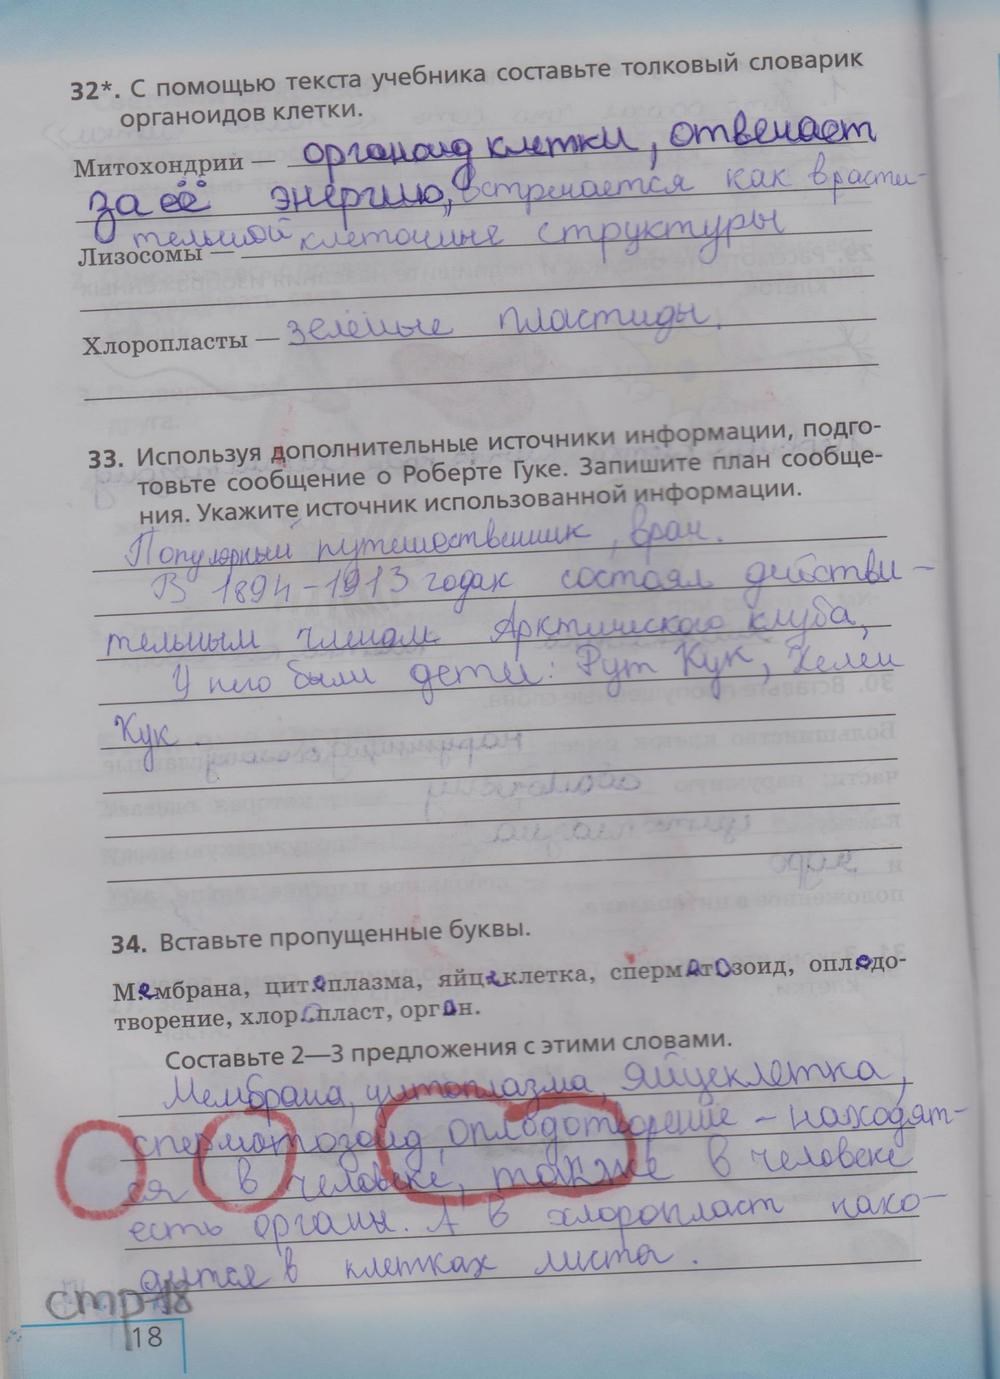 32*. С помощью текста учебника составьте толковый словарик
органоидов клетки.
Митохондрии — органоид клетки, отвечает
за её энергию, встречается как в расти-
тельной клеточные структуры
Лизосомы —
Хлоропласты — зелёные пластиды.
33. Используя дополнительные источники информации, подго-
товьте сообщение о Роберте Гуке. Запишите план сообще-
ния. Укажите источник использованной информации.
Популярный путешественник, врач.
В 1894-1913 годах состоял действи-
тельным членом Арктического клуба,
У него были дети: Рут Кук, Хелен
Кук.
34. Вставьте пропущенные буквы.
Мембрана, цитоплазма, яйцеклетка, сперматозоид, оплодо-
творение, хлоропласт, орган.
Составьте 2—3 предложения с этими словами.
Мембрана, цитоплазма, яйцеклетка,
сперматозоид, оплодотворение - находят-
ся в человеке, также в человеке
есть органы. А в хлоропласт нахо-
дится в клетках листа.
стр-18
18